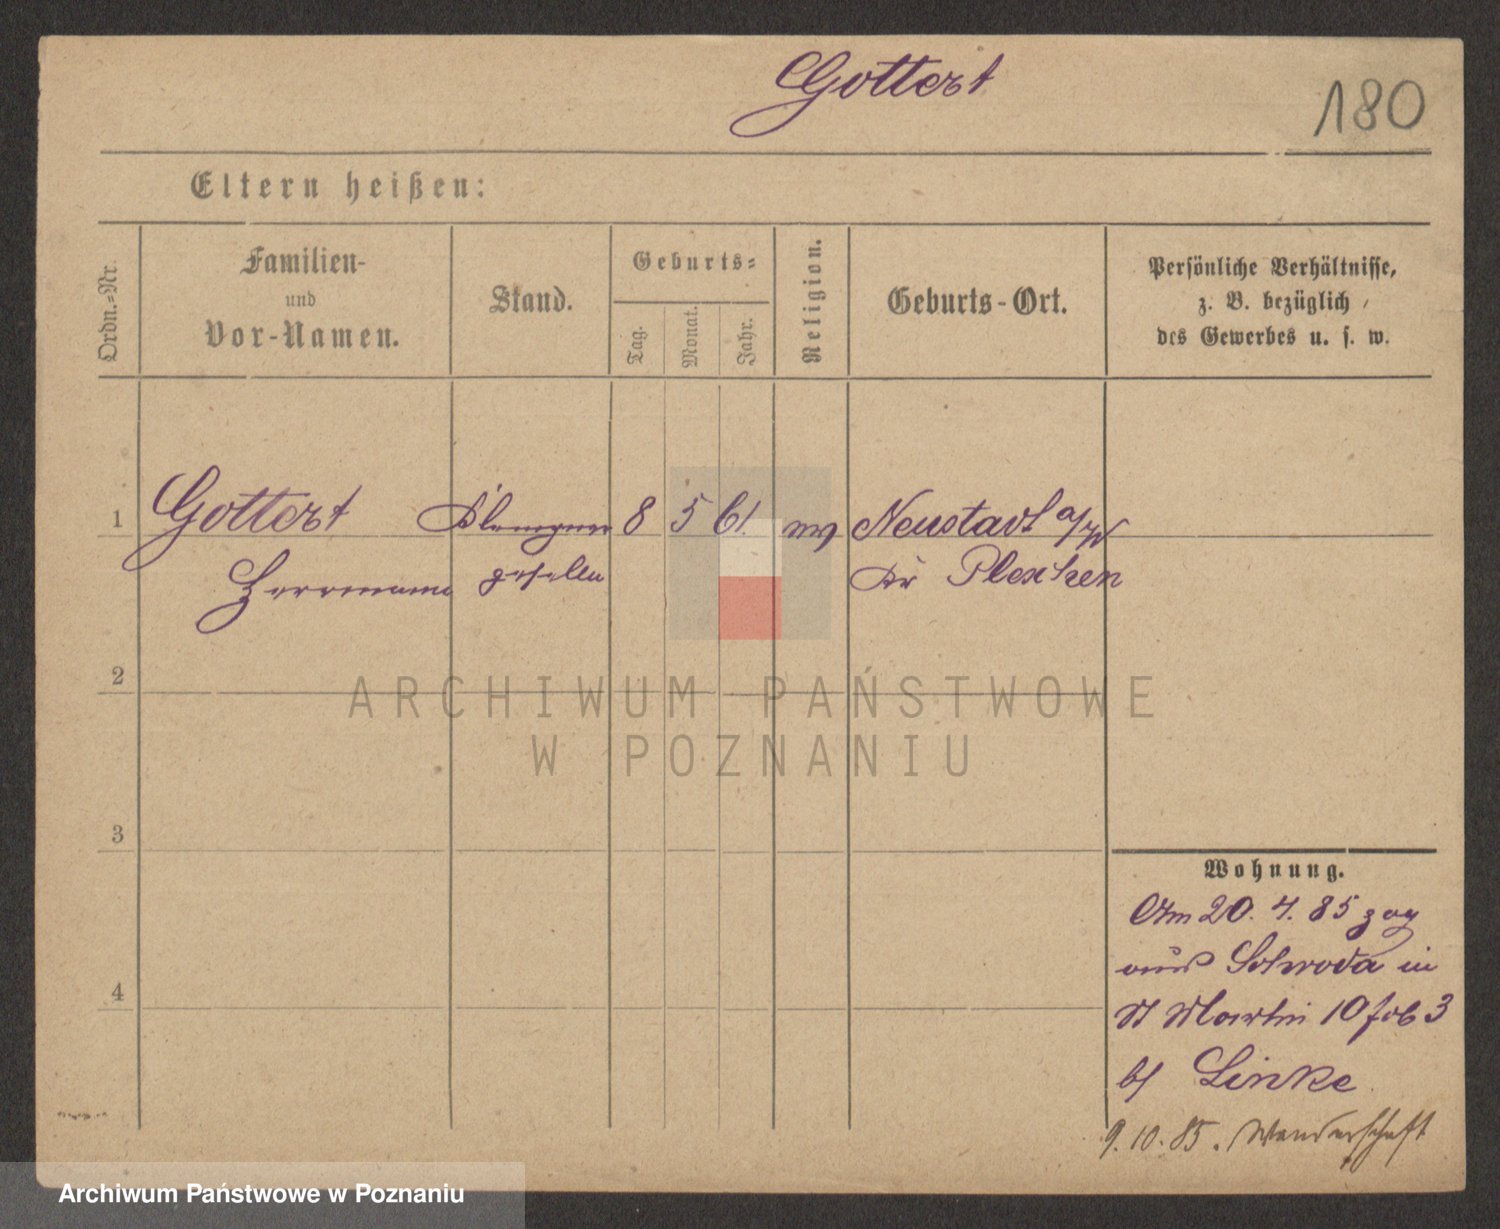 Gottert
180
Eltern heißen:
Ordn.=Nr.
Familien-
und
Vor-Namen.
Stand.
Geburts=
Tag.
Monat.
Jahr.
Religion.
Geburts-Ort.
Persönliche Verhältnisse,
z. B. bezüglich
des Gewerbes u. s. w.
1
Gottert Klempner 8 5 61. ev Neustadt a/W
Herrmann geselle Kr Pleschen
2
3
4
Wohnung.
Am 20. 4. 85 zog
aus Schroda in
St Martin 10 3
b/ Linke
9.10.85. Wanderschaft
ARCHIWUM PAŃSTWOWE
W POZNANIU
Archiwum Państwowe w Poznaniu